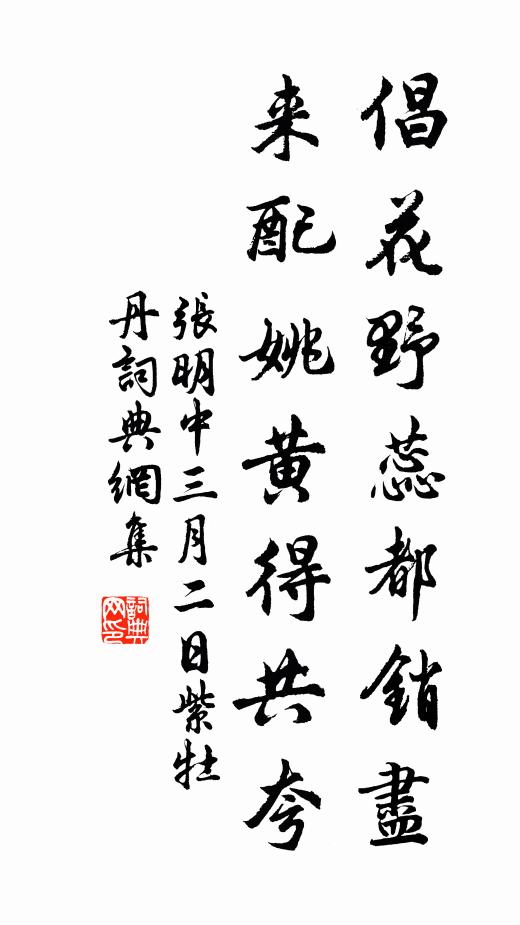 倡花野蕊都銷盡
来配姚黄得共夸
張明中三月二日紫牡
丹詞典網集
詞典网印